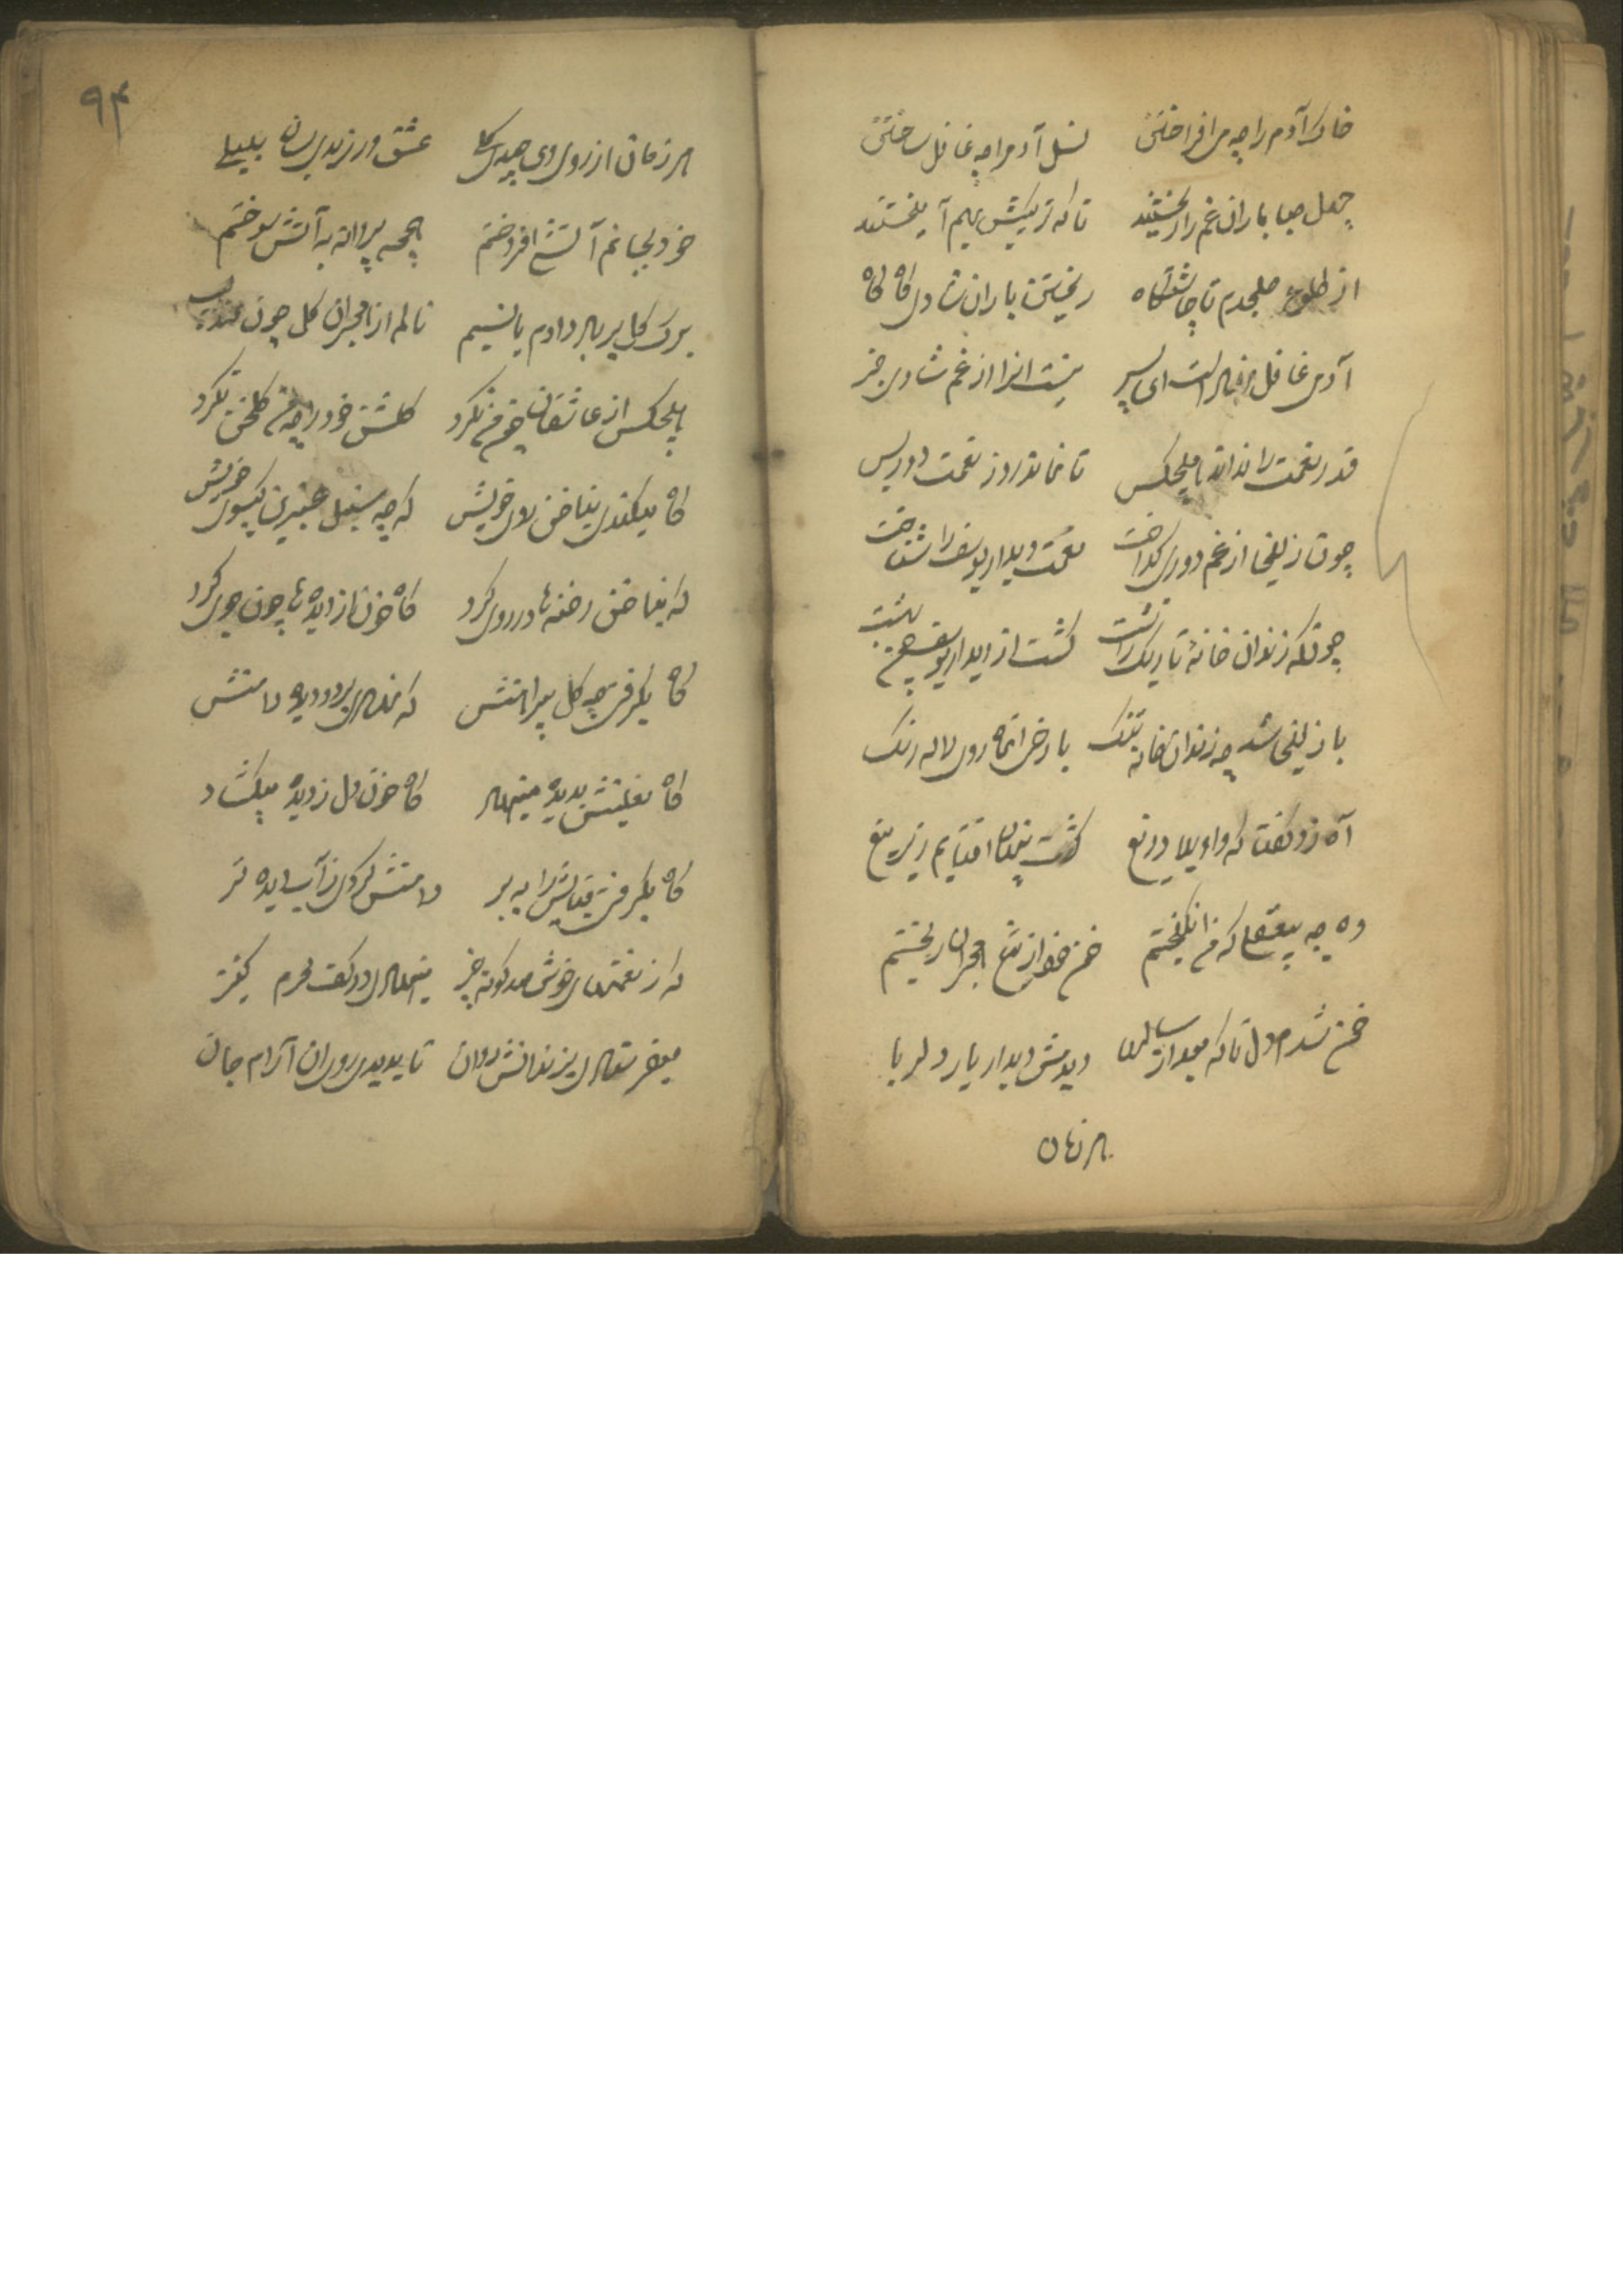 خاک آدم را چه می افراختی نسل آدم را چه غافل ساختی
چهل صبا باران غم را ریختند تا که ترکیبش بهم آمیختند
از طلوع صبحدم تا چاشتگاه ریختن باران شادی گاه گاه
آدمی غافل است ای پسر نیست او را از غم شادی خبر
قدر نعمت را نداند هیچکس تا نماند روز نعمت دور پس
چون زلیخا از غم دوری گداخت نعمت دیدار یوسف را شناخت
چونکه زندان خانهٔ تاریک زشت گشت از دیدار یوسف چون بهشت
با زلیخا شد چه زندان خانه تنگ با رخی آنماه روی لاله رنگ
آه زد گفت که واویلا دریغ کشت پنهان افتابم زیر میغ
وه چه بیعقلی که من انگیختم خون خود از تیغ هجران ریختم
خون شدم دل تا که بعد از سالها دیدمش دیدار یار دلربا
هر زمان
۹۴
هر زمان از روی وی چیدی گلی عشق ورزیدی بسان بلبلی
خود بجانم آتشی افروختم همچه پروانه به آتش سوختم
برگ گل بر باد دادم با نسیم نالم از هجران گل چون عندلیب
هیچکس از عاشقان چون من نکرد گلشن خود را چه من گلخن نکرد
گاه میکندی بناخن روی خویش گه چه سنبل عنبرین گیسوی خویش
گه بناخن رخنه ها در روی کرد گاه خون از دیده ها چون جوی کرد
گاه بگرفتی چه گل پیراهنش گه نهادی بر دو دیده دامنش
گاه نعلینش بدیده مینهاد گاه خون دل ز دیده میگشاد
گاه بگرفتی قبایش را به بر دامنش کردی ز آب دیده تر
که از نعمتهای خوش صد گونه چیز مینهادی در کف محرم کنیز
میفرستادی بزندانش روان تا بدیدی روی آن آرام جان